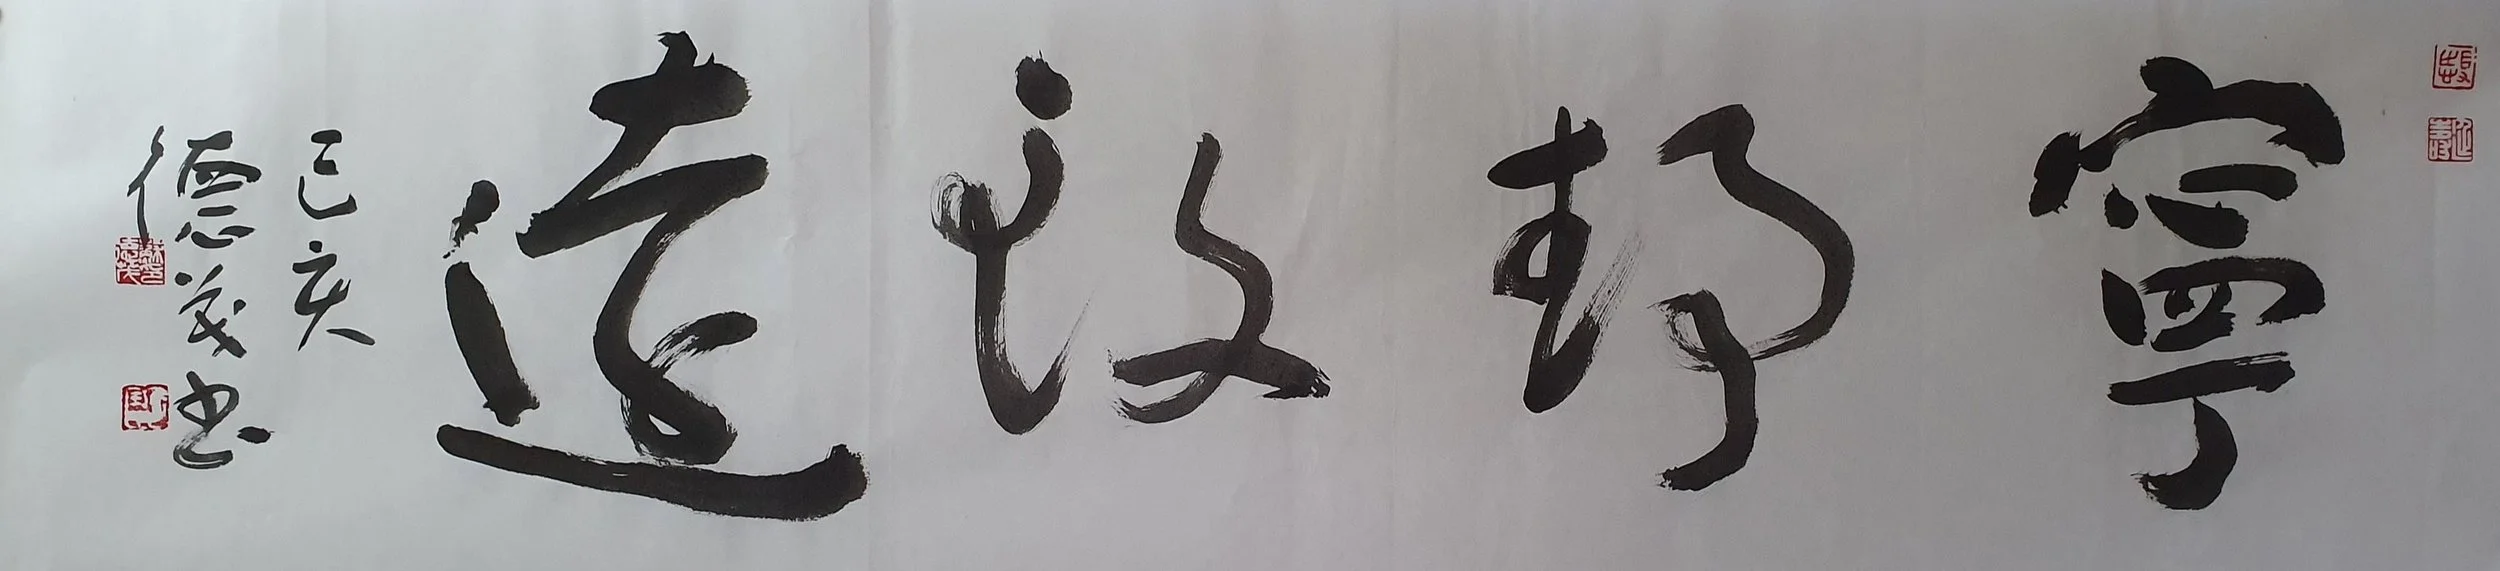 寧靜致遠
己亥
德茂书